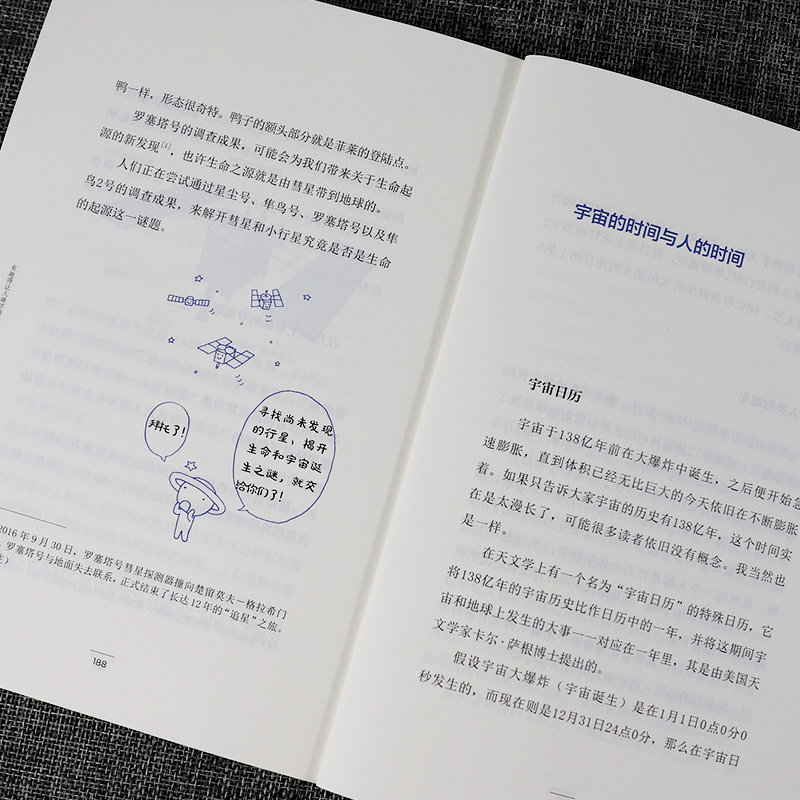 鸭一样，形态很奇特。鸭子的额头部分就是菲莱的登陆点。
罗塞塔号的调查成果，可能会为我们带来关于生命起
源的新发现[1]，也许生命之源就是由彗星带到地球的。
人们正在尝试通过星尘号、隼鸟号、罗塞塔号以及隼
鸟2号的调查成果，来解开彗星和小行星究竟是否是生命
的起源这一谜题。
拜托了！
寻找尚未发现
的行星，揭开
生命和宇宙诞
生之谜，就交
给你们了！
2016年9月30日，罗塞塔号彗星探测器撞向楚留莫夫－格拉希门
，罗塞塔号与地面失去联系，正式结束了长达12年的“追星”之旅。
188
宇宙的时间与人的时间
宇宙日历
宇宙于138亿年前在大爆炸中诞生，之后便开始急
速膨胀，直到体积已经无比巨大的今天依旧在不断膨胀
着。如果只告诉大家宇宙的历史有138亿年，这个时间实
在是太漫长了，可能很多读者依旧没有概念。我当然也
是一样。
在天文学上有一个名为“宇宙日历”的特殊日历，它
将138亿年的宇宙历史比作日历中的一年，并将这期间宇
宙和地球上发生的大事一一对应在一年里，其是由美国天
文学家卡尔·萨根博士提出的。
假设宇宙大爆炸（宇宙诞生）是在1月1日0点0分0
秒发生的，而现在则是12月31日24点0分，那么在宇宙日